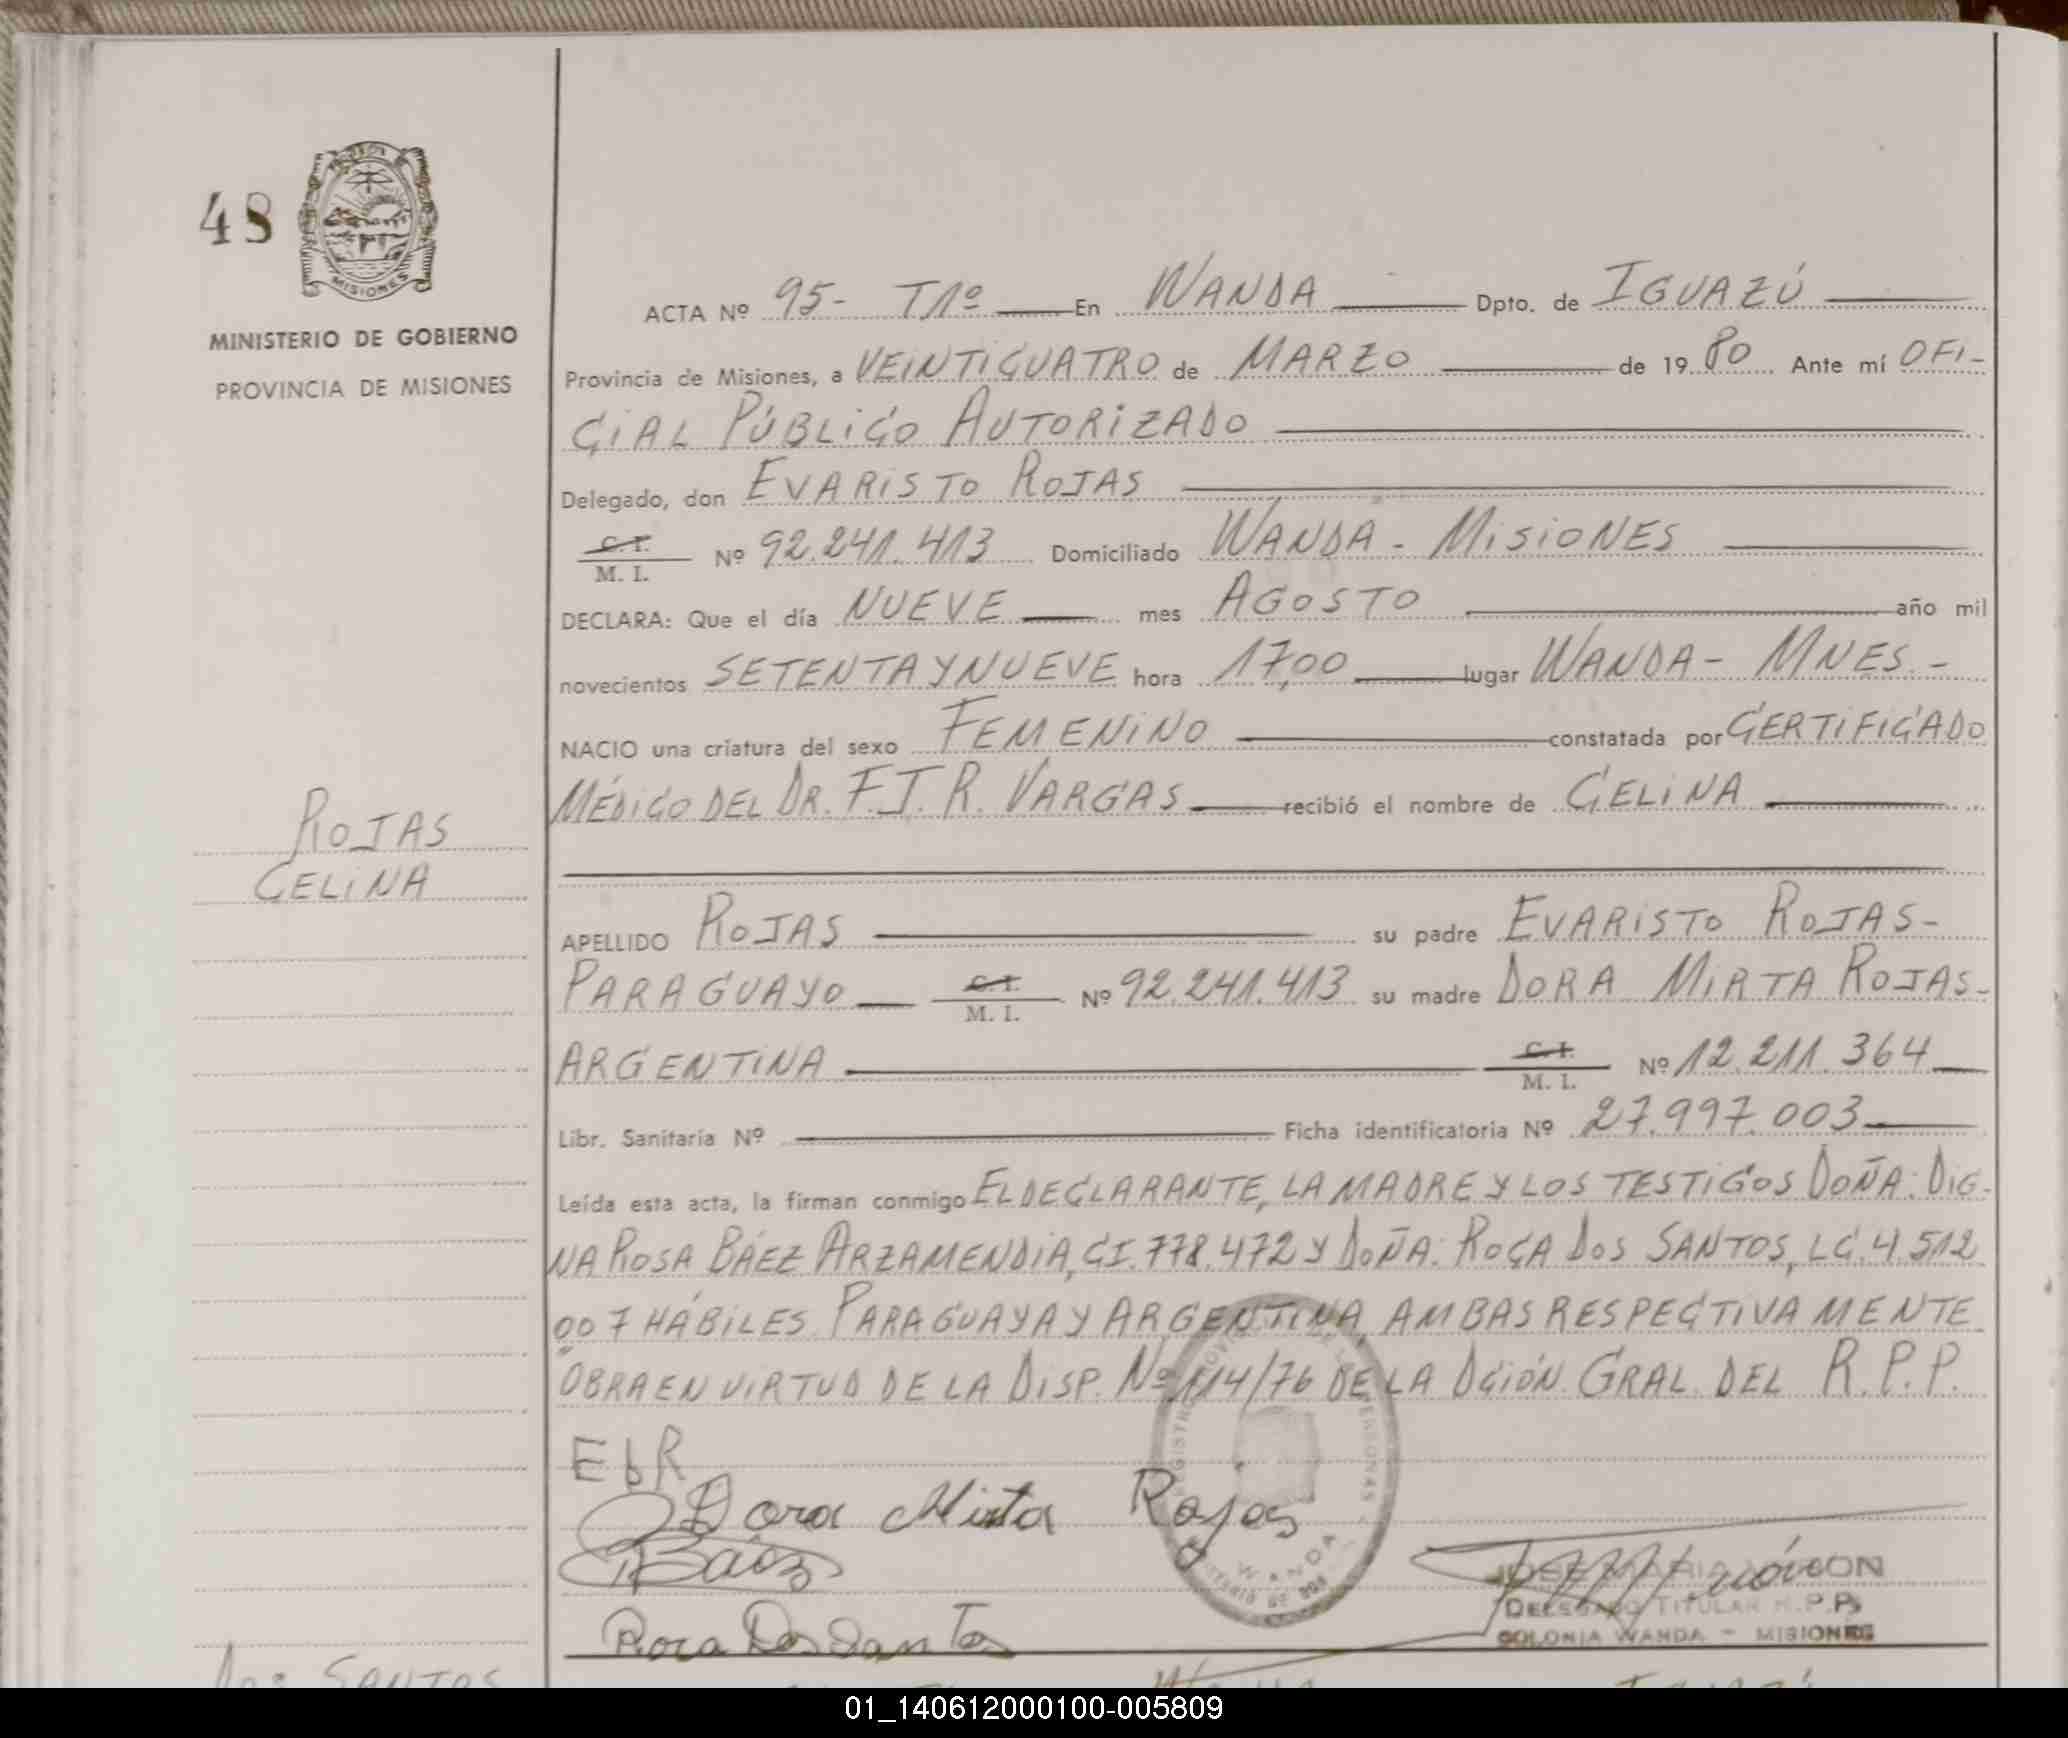 48
MISIONES
MINISTERIO DE GOBIERNO
PROVINCIA DE MISIONES
ROJAS
CELINA
ACTA Nº 95- T1º En WANDA Dpto. de IGUAZÚ
Provincia de Misiones, a VEINTICUATRO de MARZO de 19 80 Ante mí OFI-
CIAL PÚBLICO AUTORIZADO
Delegado, don EVARISTO ROJAS
C.I. M. I. Nº 92.241.413 Domiciliado WANDA - MISIONES
DECLARA: Que el día NUEVE mes AGOSTO año mil
novecientos SETENTA Y NUEVE hora 17,00 lugar WANDA - MNES. -
NACIO una criatura del sexo FEMENINO constatada por CERTIFICADO
MÉDICO DEL DR. F.J.R. VARGAS recibió el nombre de CELINA
APELLIDO ROJAS su padre EVARISTO ROJAS-
PARAGUAYO C.I. M. I. Nº 92.241.413 su madre DORA MIRTA ROJAS-
ARGENTINA C.I. M. I. Nº 12.211.364
Libr. Sanitaria Nº Ficha identificatoria Nº 27.997.003
Leída esta acta, la firman conmigo EL DECLARANTE, LA MADRE Y LOS TESTIGOS DOÑA: DIG-
NA ROSA BÁEZ ARZAMENDIA, CI. 778.472 Y DOÑA: ROCA DOS SANTOS, LC. 4.512
007 HÁBILES PARAGUAYA Y ARGENTINA AMBAS RESPECTIVAMENTE
OBRA EN VIRTUD DE LA DISP. Nº 114/76 DE LA DCIÓN. GRAL. DEL R.P.P.
EbR
Dora Mirta Rojas
Báez
Roca Dos Santos
WANDA
DELEGADO TITULAR R.P.P.
COLONIA WANDA - MISIONES
Dos SANTOS
01_140612000100-005809